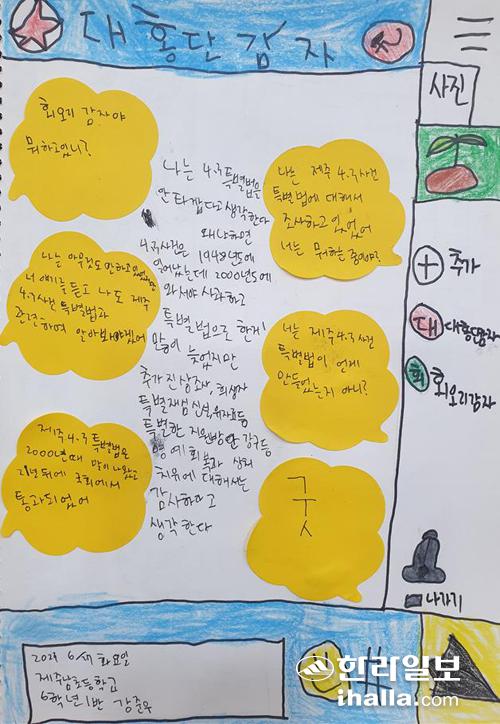 대홍단감자
사진
회오리 감자야
뭐하고있니?
나는 제주 4.3사건
특별법에 대해서
조사하고 있었어
너는 뭐하는 중이야?
나는 아무것도 안하고 있었는데
너 얘기를 듣고 나도 제주
4.3사건 특별법과
관련하여 알아봐야겠어
너는 제주4.3사건
특별법이 언제
만들었는지 아니?
제주4.3 특별법은
2000년때 많이 나왔고
21년뒤에 국회에서
통과되었어
ㄱㅜㅅ
나는 4.3특별법을
안타깝다고 생각한다
왜냐하면
4.3사건은 1948년도에
일어났는데 2000년도에
와서야 사과하고
특별법으로 한게
많이 늦었지만
추가 진상조사, 희생자
특별재심 신설, 위자료등
특별한 지원방안 강구등
명예회복과 상처
치유에 대해서는
감사하다고
생각한다
추가
대 대홍단감자
회 회오리감자
나가기
2021 6 화요일
제주남초등학교
6학년 1반 강준우
한라일보
ihalla.com